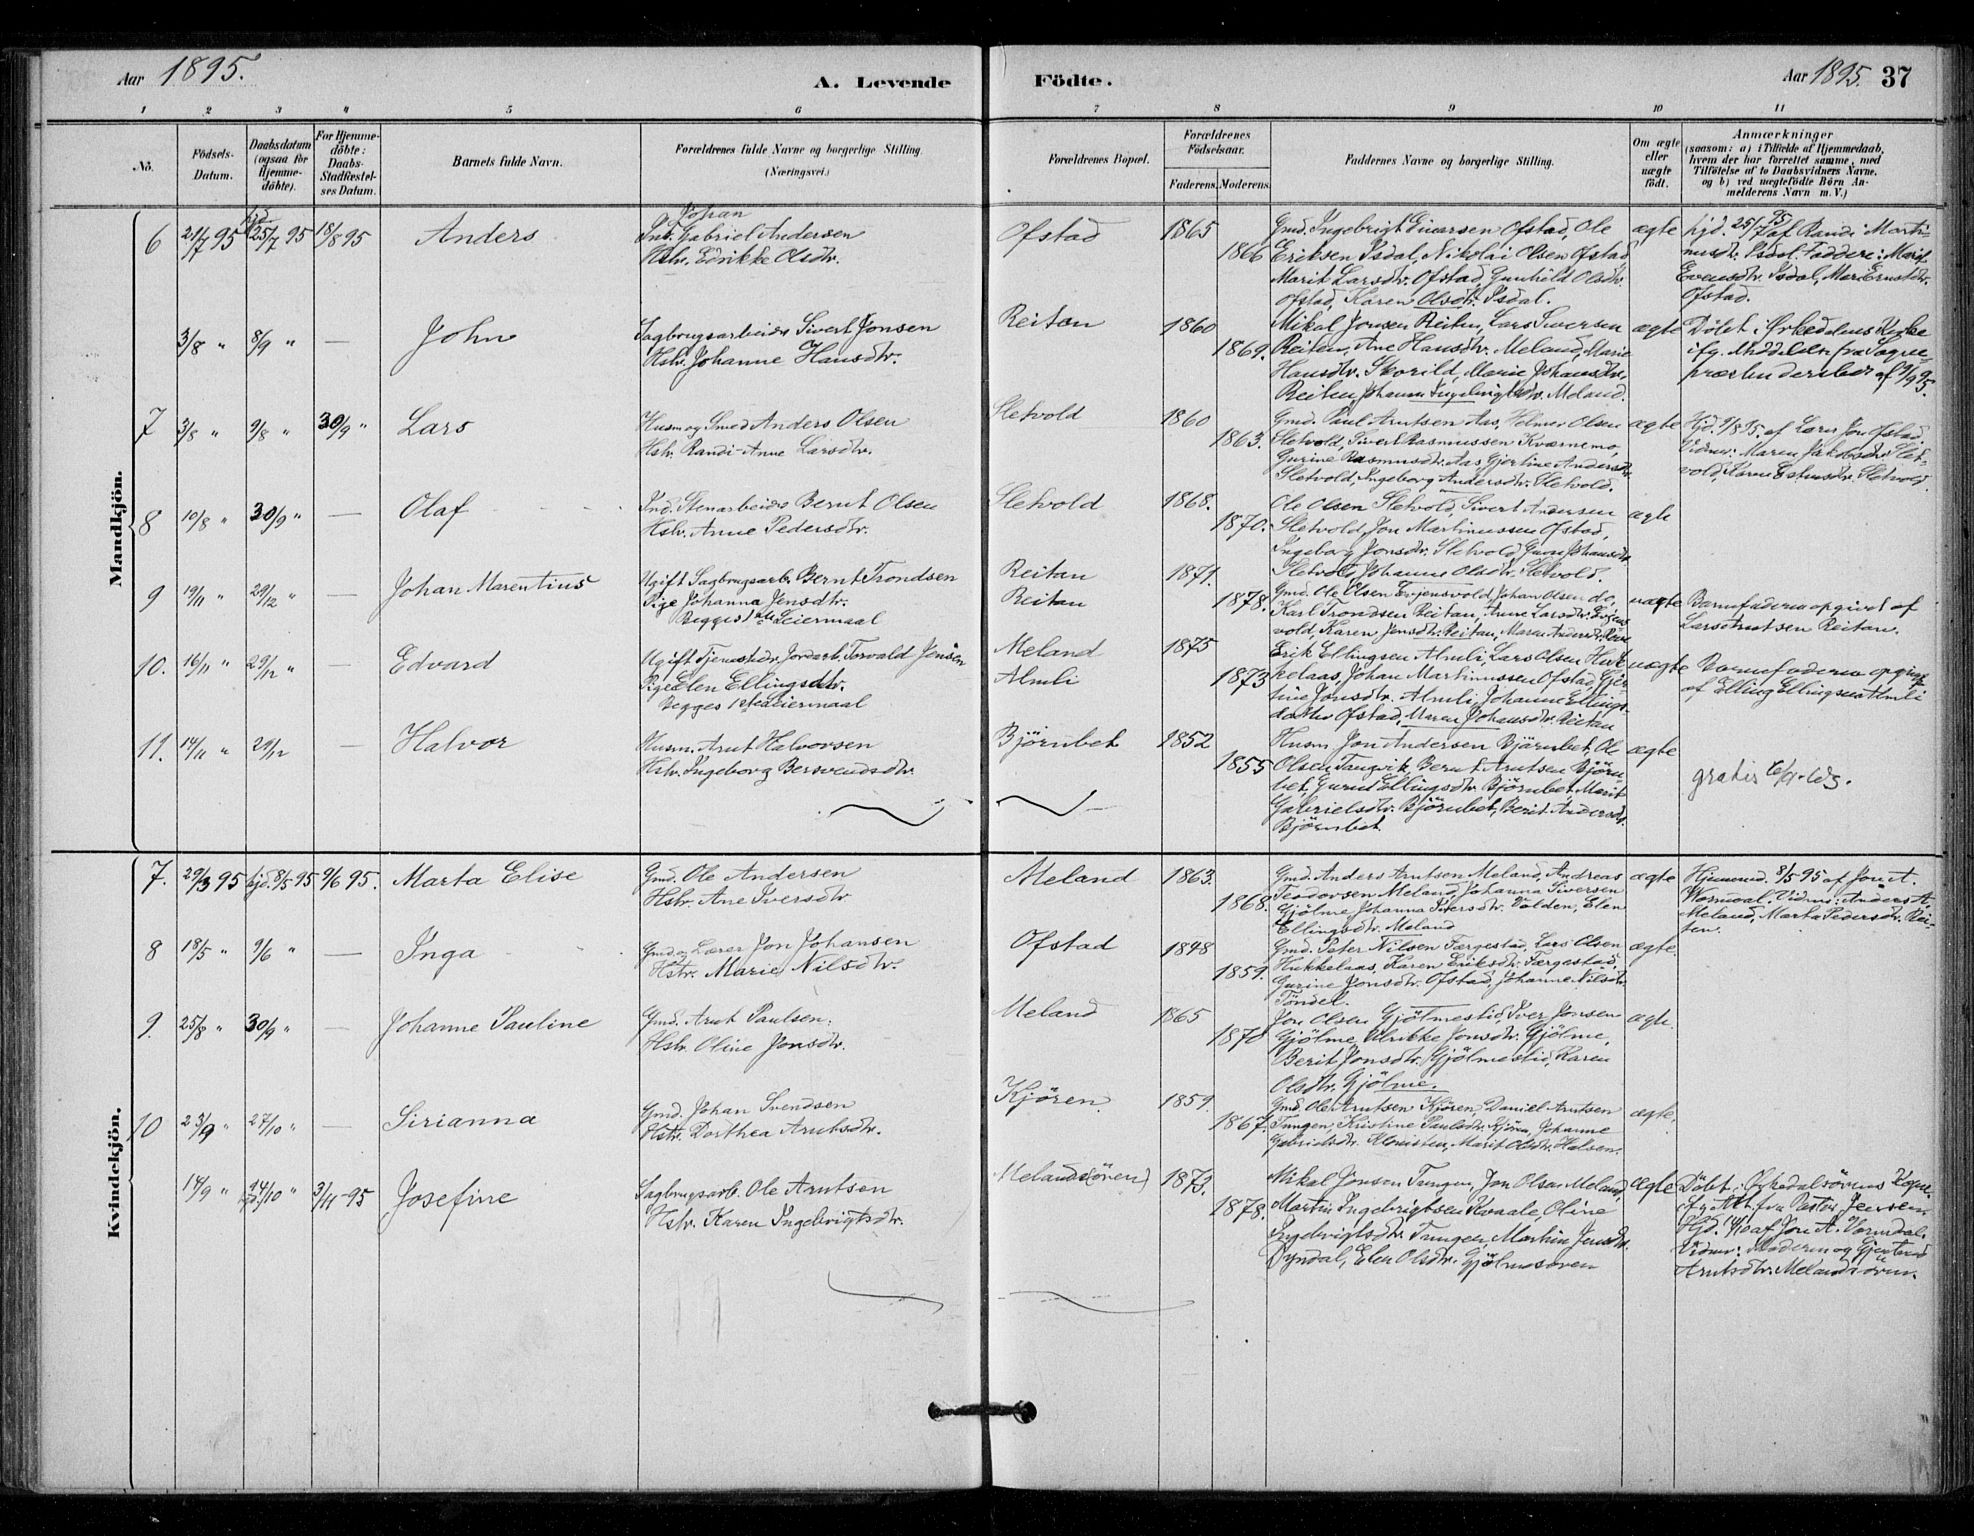 Aar 1895.
A. Levende
Födte.
Aar 1895. 37
1 2 3 4 5 6 7 8 9 10 11
No.
Födsels-Datum.
Daabsdatum (ogsaa for Hjemme-döbte).
For Hjemme-döbte: Daabs-Stadfæstel-ses Datum.
Barnets fulde Navn.
Forældrenes fulde Navne og borgerlige Stilling. (Næringsvei.)
Forældrenes Bopæl.
Forældrenes Födselsaar.
Faderens. Moderens.
Faddernes Navne og borgerlige Stilling.
Om ægte eller uægte födt.
Anmærkninger
(saasom: a) i Tilfælde af Hjemmedaab, hvem der har forrettet samme, med Tilföielse af to Daabsvidners Navne, og b) ved uægtefödte Börn Anmelderens Navn m. V.)
Mandkjön.
6 21/7 95 hjd. 25/7 95 18/8 95 Anders
Johan
Ind. Gabriel Andersen
Hstr. Edrikke Olsdtr.
Ofstad 1865 1866
Gmd. Ingebrigt Einarsen Ofstad, Ole
Eriksen Isdal, Nikolai Olsen Ofstad,
Marit Larsdtr. Ofstad, Gunhild Olsdtr.
Ofstad, Karen Olsdtr. Isdal.
ægte
hjd. 25/7 95 af Randi Marti-
nusdtr. Isdal. Faddere: Marit
Evensdtr. Isdal, Mari Ernstdtr.
Ofstad.
3/8 " 8/9 " — John
Sagbrugsarbeider Sivert Jonsen
Hstr. Johanne Hansdtr.
Reitan 1860 1869.
Mikal Jonsen Reiten, Lars Siversen
Reiten, Ane Hansdtr. Meland, Marie
Hansdtr. Skorild, Marie Johansdtr.
Reiten, Johanna Ingebrigtsdtr. Meland.
ægte
Döbt i Ørkedalens Kirke
ifg. Meddelelse fra Sogne-
præsten dersteds af 9/9 95.
7 3/8 " 9/8 " 30/9 " Lars
Husm. og Smed Anders Olsen
Hstr. Randi-Anne Larsdtr.
Sletvold 1860 1863.
Gmd. Paul Arntsen Aas, Helmer Olsen
Sletvold, Sivert Rasmussen Kværnmo,
Gurine Rasmusdtr. Aas, Gjertine Andersdtr.
Sletvold, Ingeborg Andersdtr. Sletvold.
ægte
Hjd. 9/8 95. af Lærer Jon Ofstad.
Vidner: Maren Jakobsdtr. Slet-
vold, Karen Estensdtr. Sletvold.
8 10/8 " 30/9 " — Olaf
Ind. Stenarbeider Bernt Olsen
Hstr. Anne Pedersdtr.
Sletvold 1868. 1870.
Ole Olsen Sletvold, Sivert Andersen
Sletvold, Jon Martinussen Ofstad,
Ingeborg Jonsdtr. Sletvold, Guru Johansdtr.
Sletvold, Johanne Olsdtr. Sletvold.
ægte
9 19/11 " 29/12 " — Johan Marentius
Ugift Sagbrugsarb. Bernt Trondsen
Pige Johanna Jensdtr.
Begges 1ste Leiermaal
Reitan
Reitan
1871. 1878.
Gmd. Ole Olsen Evjensvold, Johan Olsen do,
Karl Trondsen Reitan, Anne Larsdtr. Evjens-
vold, Karen Jensdtr. Reitan, Maren Andersdtr.
uægte
Barnefaderen opgivet af
Lars Arntsen Reitan.
10. 16/11 " 29/12 " — Edvard
Ugift Tjenestedr. Jordarb. Torvald Jensen
Pige Elen Ellingsdtr.
Begges 1ste Leiermaal
Meland
Almli
1875 1873
Erik Ellingsen Almli, Lars Olsen Huk-
kelaas, Johan Martinussen Ofstad, Gjer-
tine Jonsdtr. Almli, Johanne Ellings-
datter Ofstad, Maren Johansdtr. Reitan
uægte
Barnefaderen opgivet
af Elling Ellingsen Almli
11. 14/11 " 29/12 — Halvor
Husm. Arnt Halvorsen
Hstr. Ingeborg Bersvendsdtr.
Björnbet 1852 1855
Husm. Jon Andersen Björnbet, Ole
Olsen Tangvik, Bernt Arntsen Björn-
bet, Guru Ellingsdtr. Björnbet, Marit
Gabrielsdtr. Björnbet, Berit Andersdtr.
Björnbet
ægte
gratis
Kvindekjön.
7. 29/3 95 hjd. 8/5 95 9/6 95. Marta Elise
Gmd. Ole Andersen
Hstr. Ane Iversdtr.
Meland 1863. 1868.
Gmd. Anders Arntsen Meland, Andreas
Teodorsen Meland, Johanna Siversen
Gjölme, Johanna Iversdtr. Volden, Elen
Ellingsdtr. Meland
ægte
Hjemmed. 8/5 95 af Jon A.
Wormdal. Vidner: Anders A.
Meland, Marta Pedersdtr. Rei-
ten.
8 18/5 " 9/6 " — Inga
Gmd. og Lærer Jon Johansen
Hstr. Marie Nilsdtr.
Ofstad 1848 1859.
Gmd. Peter Nilsen Færgestad, Lars Olsen
Hukkelaas, Karen Eriksdtr. Færgestad,
Gurine Jonsdtr. Ofstad, Johanne Nilsdtr.
Töndel.
ægte
9. 25/8 " 30/9 " — Johanne Pauline
Gmd. Arnt Paulsen.
Hstr. Oline Jonsdtr.
Meland 1865 1870
Jon Olsen Gjölmeslid, Iver Jonsen
Gjölme, Ulrikke Jonsdtr. Gjölme,
Berit Jonsdtr. Gjölmeslid, Karen
Olsdtr. Gjölme.
ægte.
10 23/9 " 27/10 " — Sirianna
Gmd. Johan Svendsen
Hstr. Dorthea Arntsdtr.
Kjören 1859. 1867.
Gmd. Ole Arntsen Kjören, Daniel Arntsen
Tungen, Kristine Paulsdtr. Kjören, Johanne
Gabrielsdtr. Marit Olsdtr. Halsen.
ægte.
14/9 " hjd. 14/10 " 3/11-95 Josefine
Sagbrugsarb. Ole Arntsen
Hstr. Karen Ingebrigtsdtr.
Meland(sören) 1873. 1878.
Mikal Jonsen Tungen, Jon Olsen Meland,
Martin Ingebrigtsen Kvaale, Oline
Ingebrigtsdtr. Tungen, Martine Jensdtr.
Dyndal, Elen Olsdtr. Gjölmesören
ægte
Döbt i Orkedalsörens Kapel
ifg. Att. fra Pastor Jensen.
Hjd. 14/10 af Jon A. Vormdal.
Vidner: Moderen og Gjertrud
Arntsdtr. Melandsören.